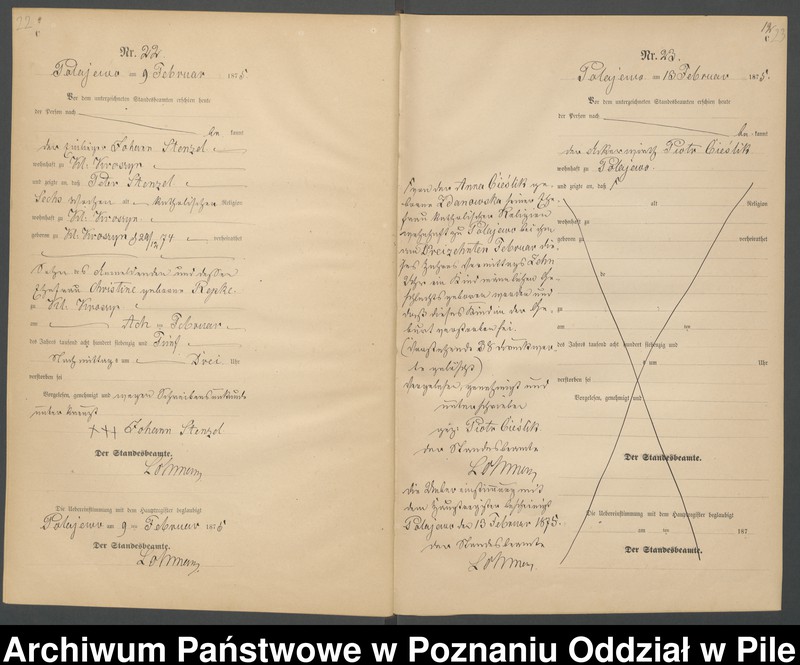 22
Nr. 22
Polajewo am 9 Februar 1875.
Vor dem unterzeichneten Standesbeamten erschien heute
der Person nach
be kannt
der Johann Stenzel
wohnhaft zu Kl. Kroszyn
und zeigte an, daß Peter Stenzel
Sechs Wochen alt katholischer Religion
wohnhaft zu Kl. Kroszyn
geboren zu Kl. Kroszyn d. 24/12 74 verheirathet
Sohn des Anmeldenden und dessen
Ehefrau Christine geborene Repke
zu Kl. Kroszyn
am Acht ten Februar
des Jahres tausend acht hundert siebenzig und Fünf
Nach mittags um Drei Uhr
verstorben sei
Vorgelesen, genehmigt und wegen Schreibensunkunde
unterkreuzt
+++ Johann Stenzel
Der Standesbeamte.
Die Uebereinstimmung mit dem Hauptregister beglaubigt
Polajewo am 9 ten Februar 1875
Der Standesbeamte.
23
Nr. 23.
Polajewo am 13 Februar 1875.
Vor dem unterzeichneten Standesbeamten erschien heute
der Person nach
be kannt
der Ackerwirth Piotr Cieślik
wohnhaft zu Polajewo
und zeigte an, daß
von der Anna Cieślik ge-
borene Zdanowska seiner Ehe-
frau katholischer Religion
wohnhaft zu Polajewo bei ihm
am Dreizehnten Februar die-
ses Jahres Vormittags Zehn
Uhr ein Kind männlichen Ge-
schlechts geboren worden und
daß dieses Kind in der Ge-
burt verstorben sei.
(Vorstehende 38 Druckwor-
te gelöscht)
Vorgelesen, genehmigt und
unterschrieben
gez. Piotr Cieślik
der Standesbeamte
die Uebereinstimmung mit
dem Hauptregister bescheinigt
Polajewo den 13 Februar 1875.
der Standesbeamte
alt Religion
wohnhaft zu
geboren zu verheirathet
zu
am ten
des Jahres tausend acht hundert siebenzig und
um Uhr
verstorben sei
Vorgelesen, genehmigt und
Der Standesbeamte.
Die Uebereinstimmung mit dem Hauptregister beglaubigt
am ten 187
Der Standesbeamte.
Archiwum Państwowe w Poznaniu Oddział w Pile